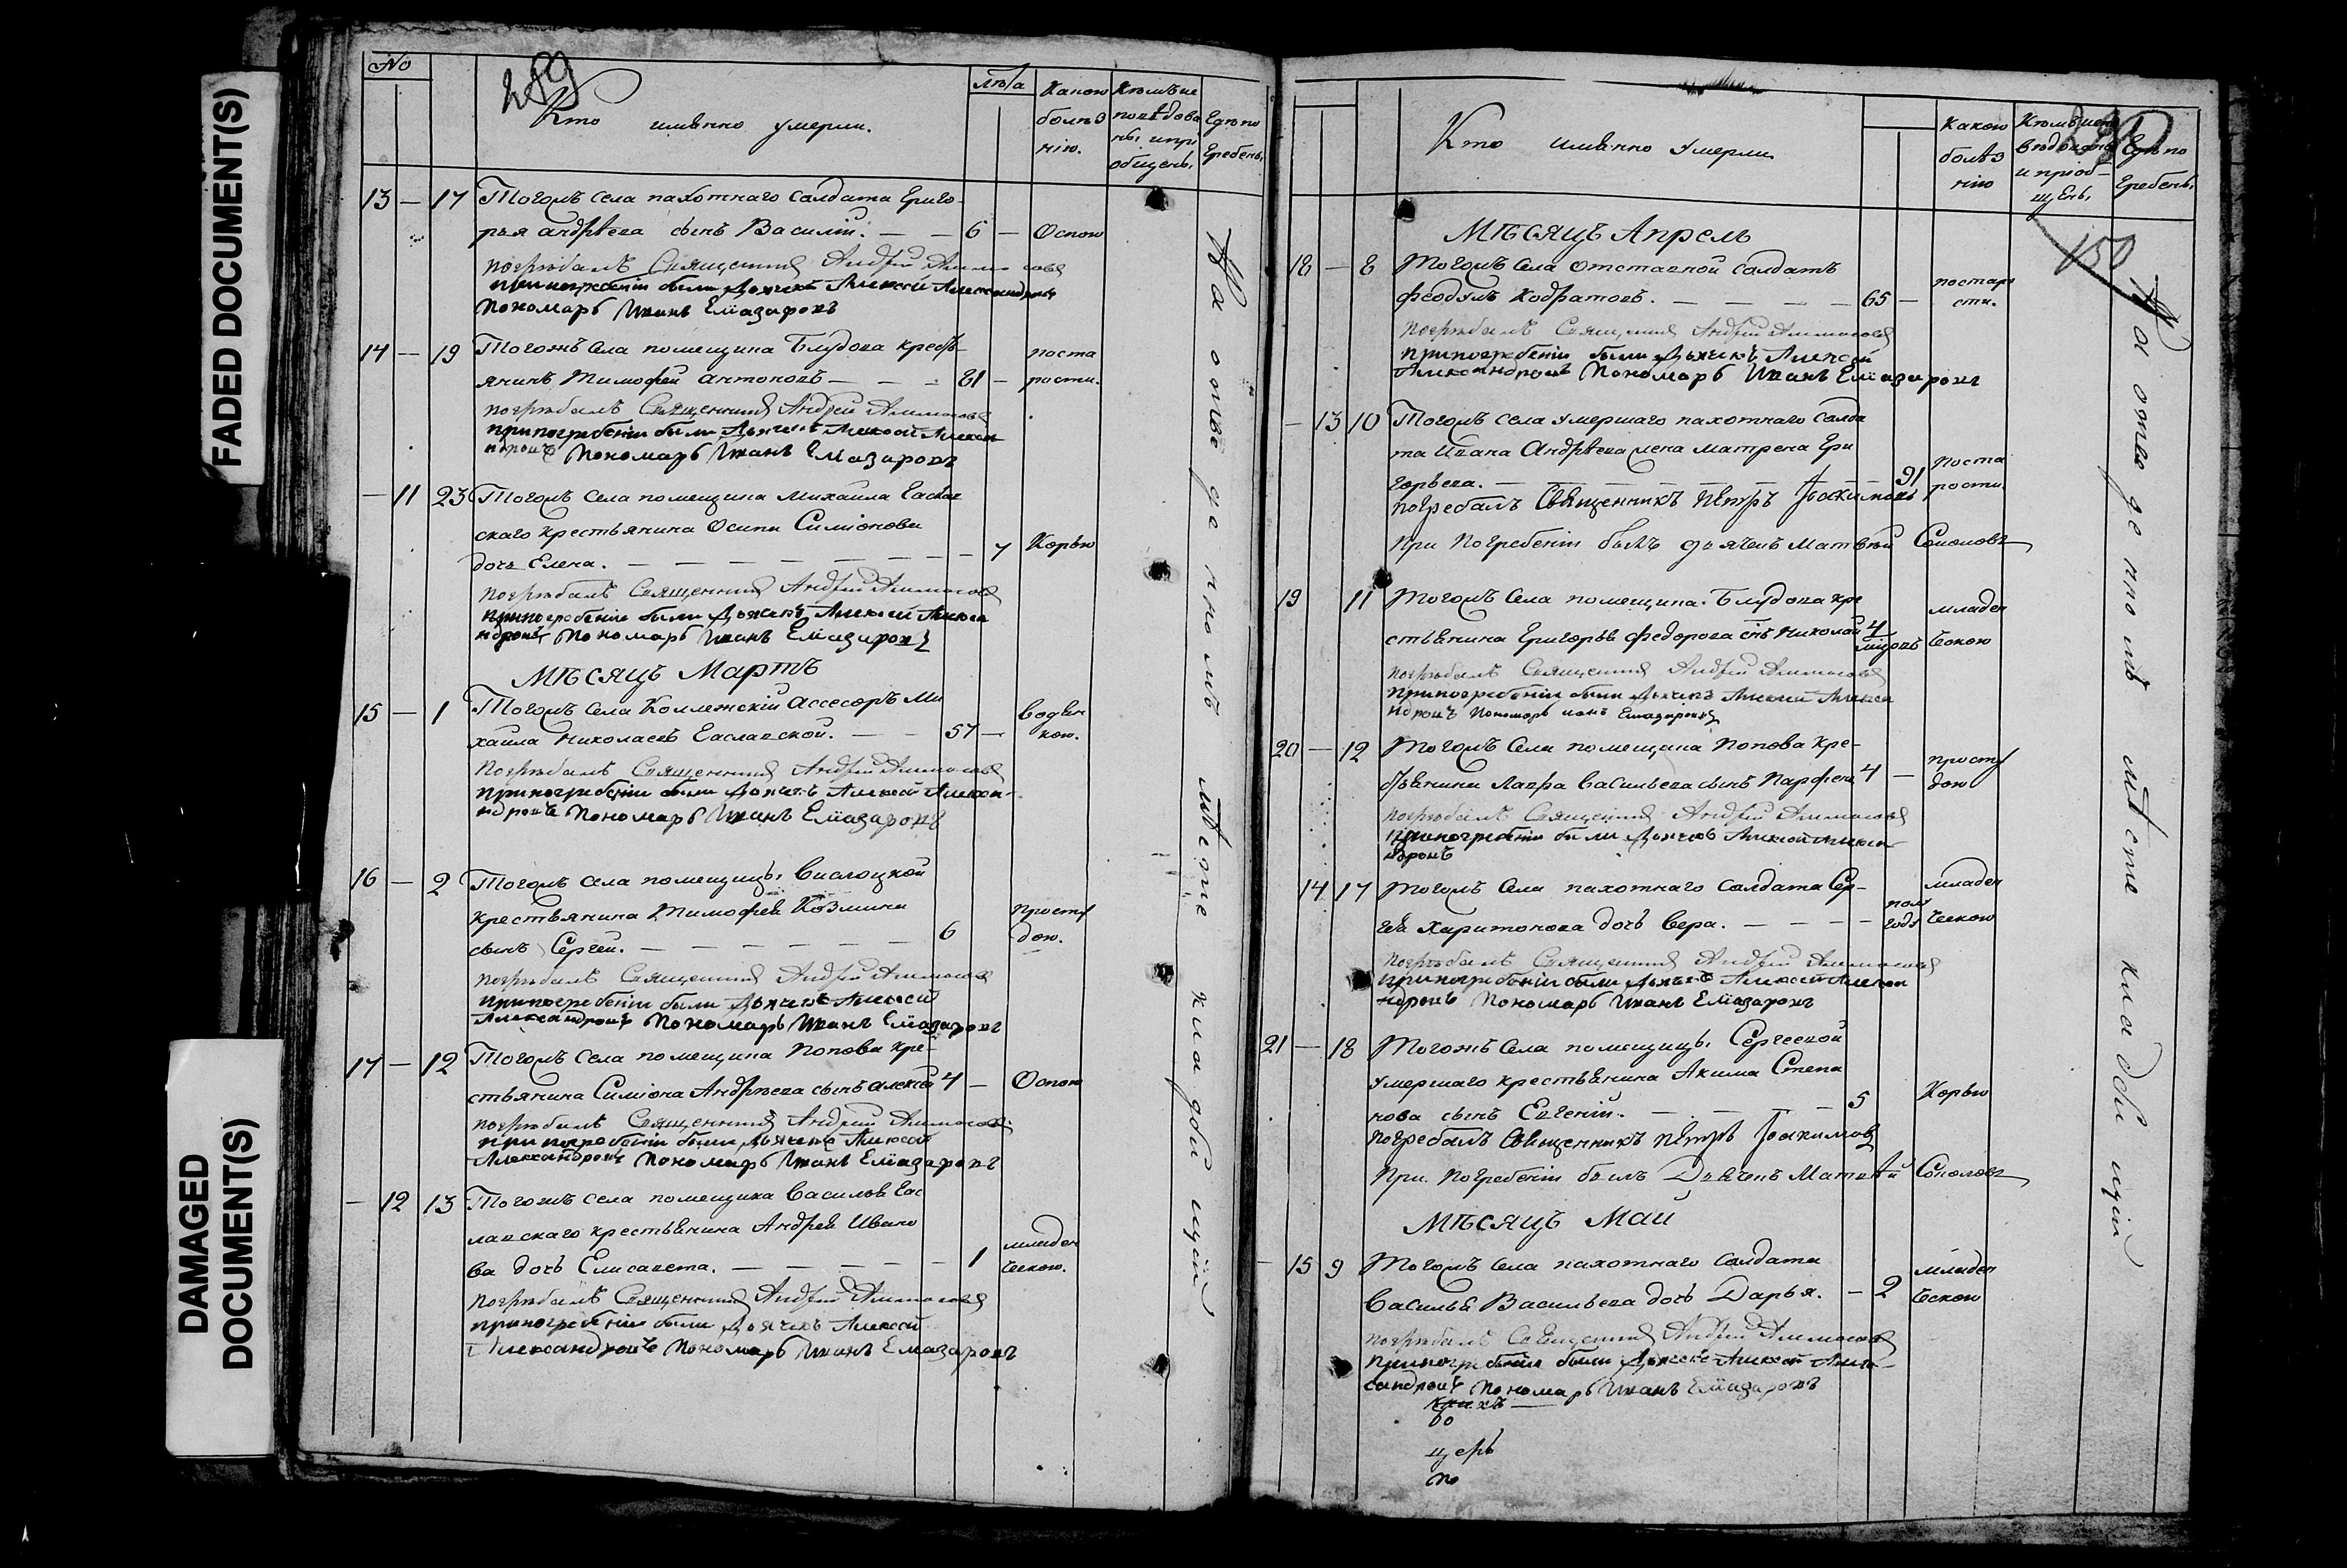 FADED DOCUMENT(S)
DAMAGED
DOCUMENT(S)
№
Кто именно умерли.
Лѣта
Какою
болѣз
нію.
Кѣмъ ис
повѣдова
ны и прі
общены.
Гдѣ по
гребены.
13 — 17 Тогожъ села пахотнаго солдата Григо
рья Андрѣева сынъ Василій. — — 6 — Оспою
погрѣбалъ Священникъ Андрей
при погребеніи были Дьячекъ Алексей Александровъ
Пономарь Иванъ Елїазаровъ
14 — 19 Тогожъ села помещика Блудова кресть
янинъ Тимофей Антоновъ — — — 81 — поста
рости.
погрѣбалъ Священникъ Андрей
при погребеніи были Дьячекъ Алексей Алекса
ндровъ Пономарь Иванъ Елїазаровъ
— 11 23 Тогожъ села помещика Михаила Еаслав
скаго крестьянина Осипа Симіонова
дочь Елена. — — — — — — 7 Корью
погрѣбалъ Священникъ Андрей
при погребеніи были Дьячекъ Алексей Алекса
ндровъ Пономарь Иванъ Елїазаровъ
Мѣсяцъ Мартъ
15 — 1 Тогожъ села Коллежскій Ассесоръ Ми
хаила Николаевъ Еаславской. — — 57 — водян
кою.
Погрѣбалъ Священникъ Андрей
при погребеніи были Дьячекъ Алексей Алекса
ндровъ Пономарь Иванъ Елїазаровъ
16 — 2 Тогожъ села помещицы Вислоцкой
крестьянина Тимофея Козмина
сынъ Сергей. — — — — — — 6 просту
дою.
погрѣбалъ Священникъ Андрей
при погребеніи были Дьячекъ Алексей
Александровъ Пономарь Иванъ Елїазаровъ
17 — 12 Тогожъ села помещика Попова кре-
стьянина Симіона Андрѣева сынъ Алексей 4 — Оспою
погрѣбалъ Священникъ Андрей
при погребеніи были Дьячекъ Алексей
Александровъ Пономарь Иванъ Елїазаровъ
— 12 13 Тогожъ села помещика Василья Еас
лавскаго крестьянина Андрея Ивано
ва дочь Елисавета. — — — — — 1 младен
ческою.
погрѣбалъ Священникъ Андрей
при погребеніи были Дьячекъ Алексей
Александровъ Пономарь Иванъ Елазаровъ
На отведенномъ мѣсте кладбищіи
Кто именно умерли
Какою
болѣз
нію
и пріоб-
щены.
Гдѣ по
гребены.
150
Мѣсяцъ Апрель
18 — 8 Тогожъ села отставной солдатъ
Феодулъ Кодратовъ. — — — — 65 — постаро
сти.
погрѣбалъ Священникъ Андрей
при погребеніи были Дьячекъ Алексей
Александровъ Пономарь Иванъ Елїазаровъ
— 13 10 Тогожъ села умершаго пахотнаго солда
та Ивана Андрѣева жена Матрена Гри
горьева. — — — — 91 поста
рости.
погребалъ Священникъ Петръ Іоакимовъ
При погребеніи былъ дьячекъ Матвей Соколовъ
19 11 Тогожъ села помещика Блудова кре
стьянина Григорья Федорова сынъ Николай 4
младен
ческою
погрѣбалъ Священникъ Андрей
при погребеніи были Дьячекъ Алексей Алекса
ндровъ Пономарь Иванъ Елїазаровъ
20 — 12 Тогожъ села помещика Попова кре-
стьянина Лавра Васильева сынъ Парфенъ 4 — просту
дою
погрѣбалъ Священникъ Андрей
при погребеніи были Дьячекъ Алексей Алекса
ндровъ
14 17 Тогожъ села пахотнаго солдата Сер-
гея Харитонова дочь Вера. — — — — пол
года младен
ческою
погрѣбалъ Священникъ Андрей
при погребеніи были Дьячекъ Алексей Алекса
ндровъ Пономарь Иванъ Елїазаровъ
21 — 18 Тогожъ села помещицы Сергеевой
умершаго крестьянина Акима Степа
нова сынъ Евгеній. — — — 5 Корью
погребалъ Священникъ Петръ Іоакимовъ
При погребеніи былъ Дьячекъ Матвей Соколовъ
Мѣсяцъ Маій
— 15 9 Тогожъ села пахотнаго солдата
Василья Васильева дочь Дарья. — 2 младен
ческою
погрѣбалъ Священникъ Андрей
при погребеніи были Дьячекъ Алексей Алек
сандровъ Пономарь Иванъ Елїазаровъ
во
церь
по
На отведенномъ мѣсте кладбищіи